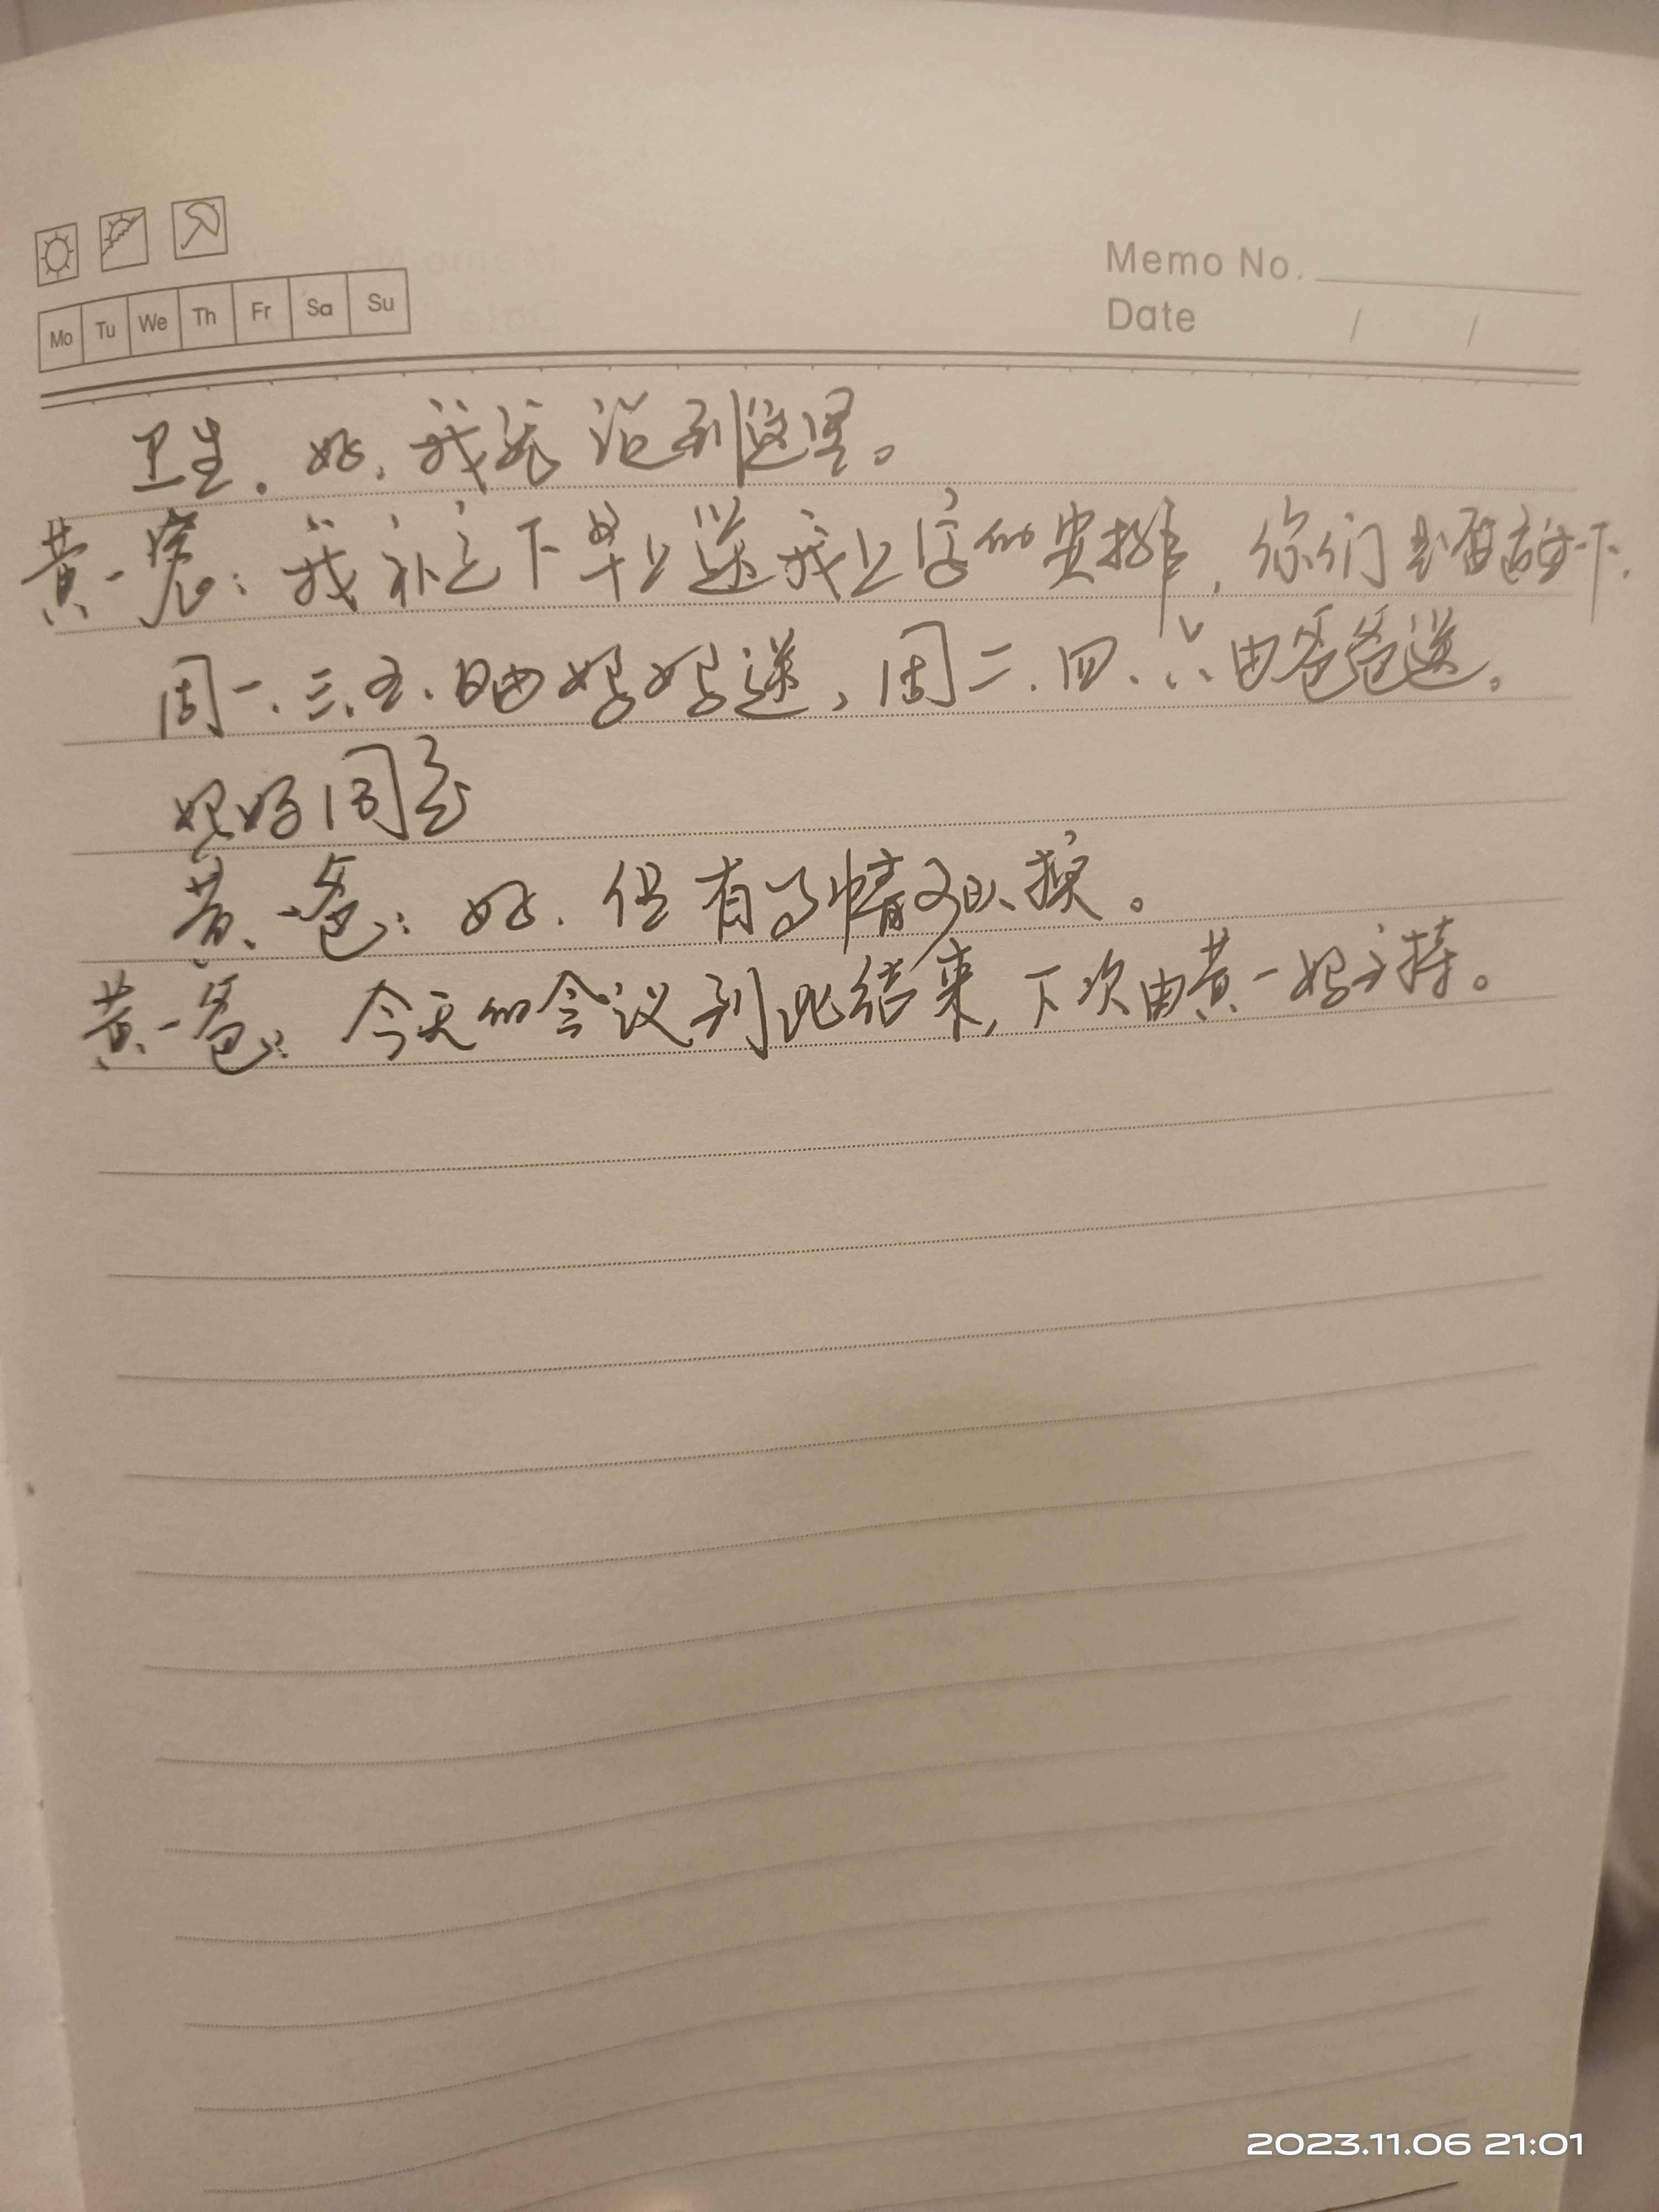 Memo No.
Date / /
Mo Tu We Th Fr Sa Su
卫生。好,我就说到这里。
黄一宸:我补充下早上送我上学的安排,你们看下,
周一、三、五、日由妈妈送,周二、四、六由爸爸送。
妈妈同意
黄一爸:好,但有事情可以换。
黄一爸:今天的会议到此结束,下次由黄一妈主持。
2023.11.06 21:01